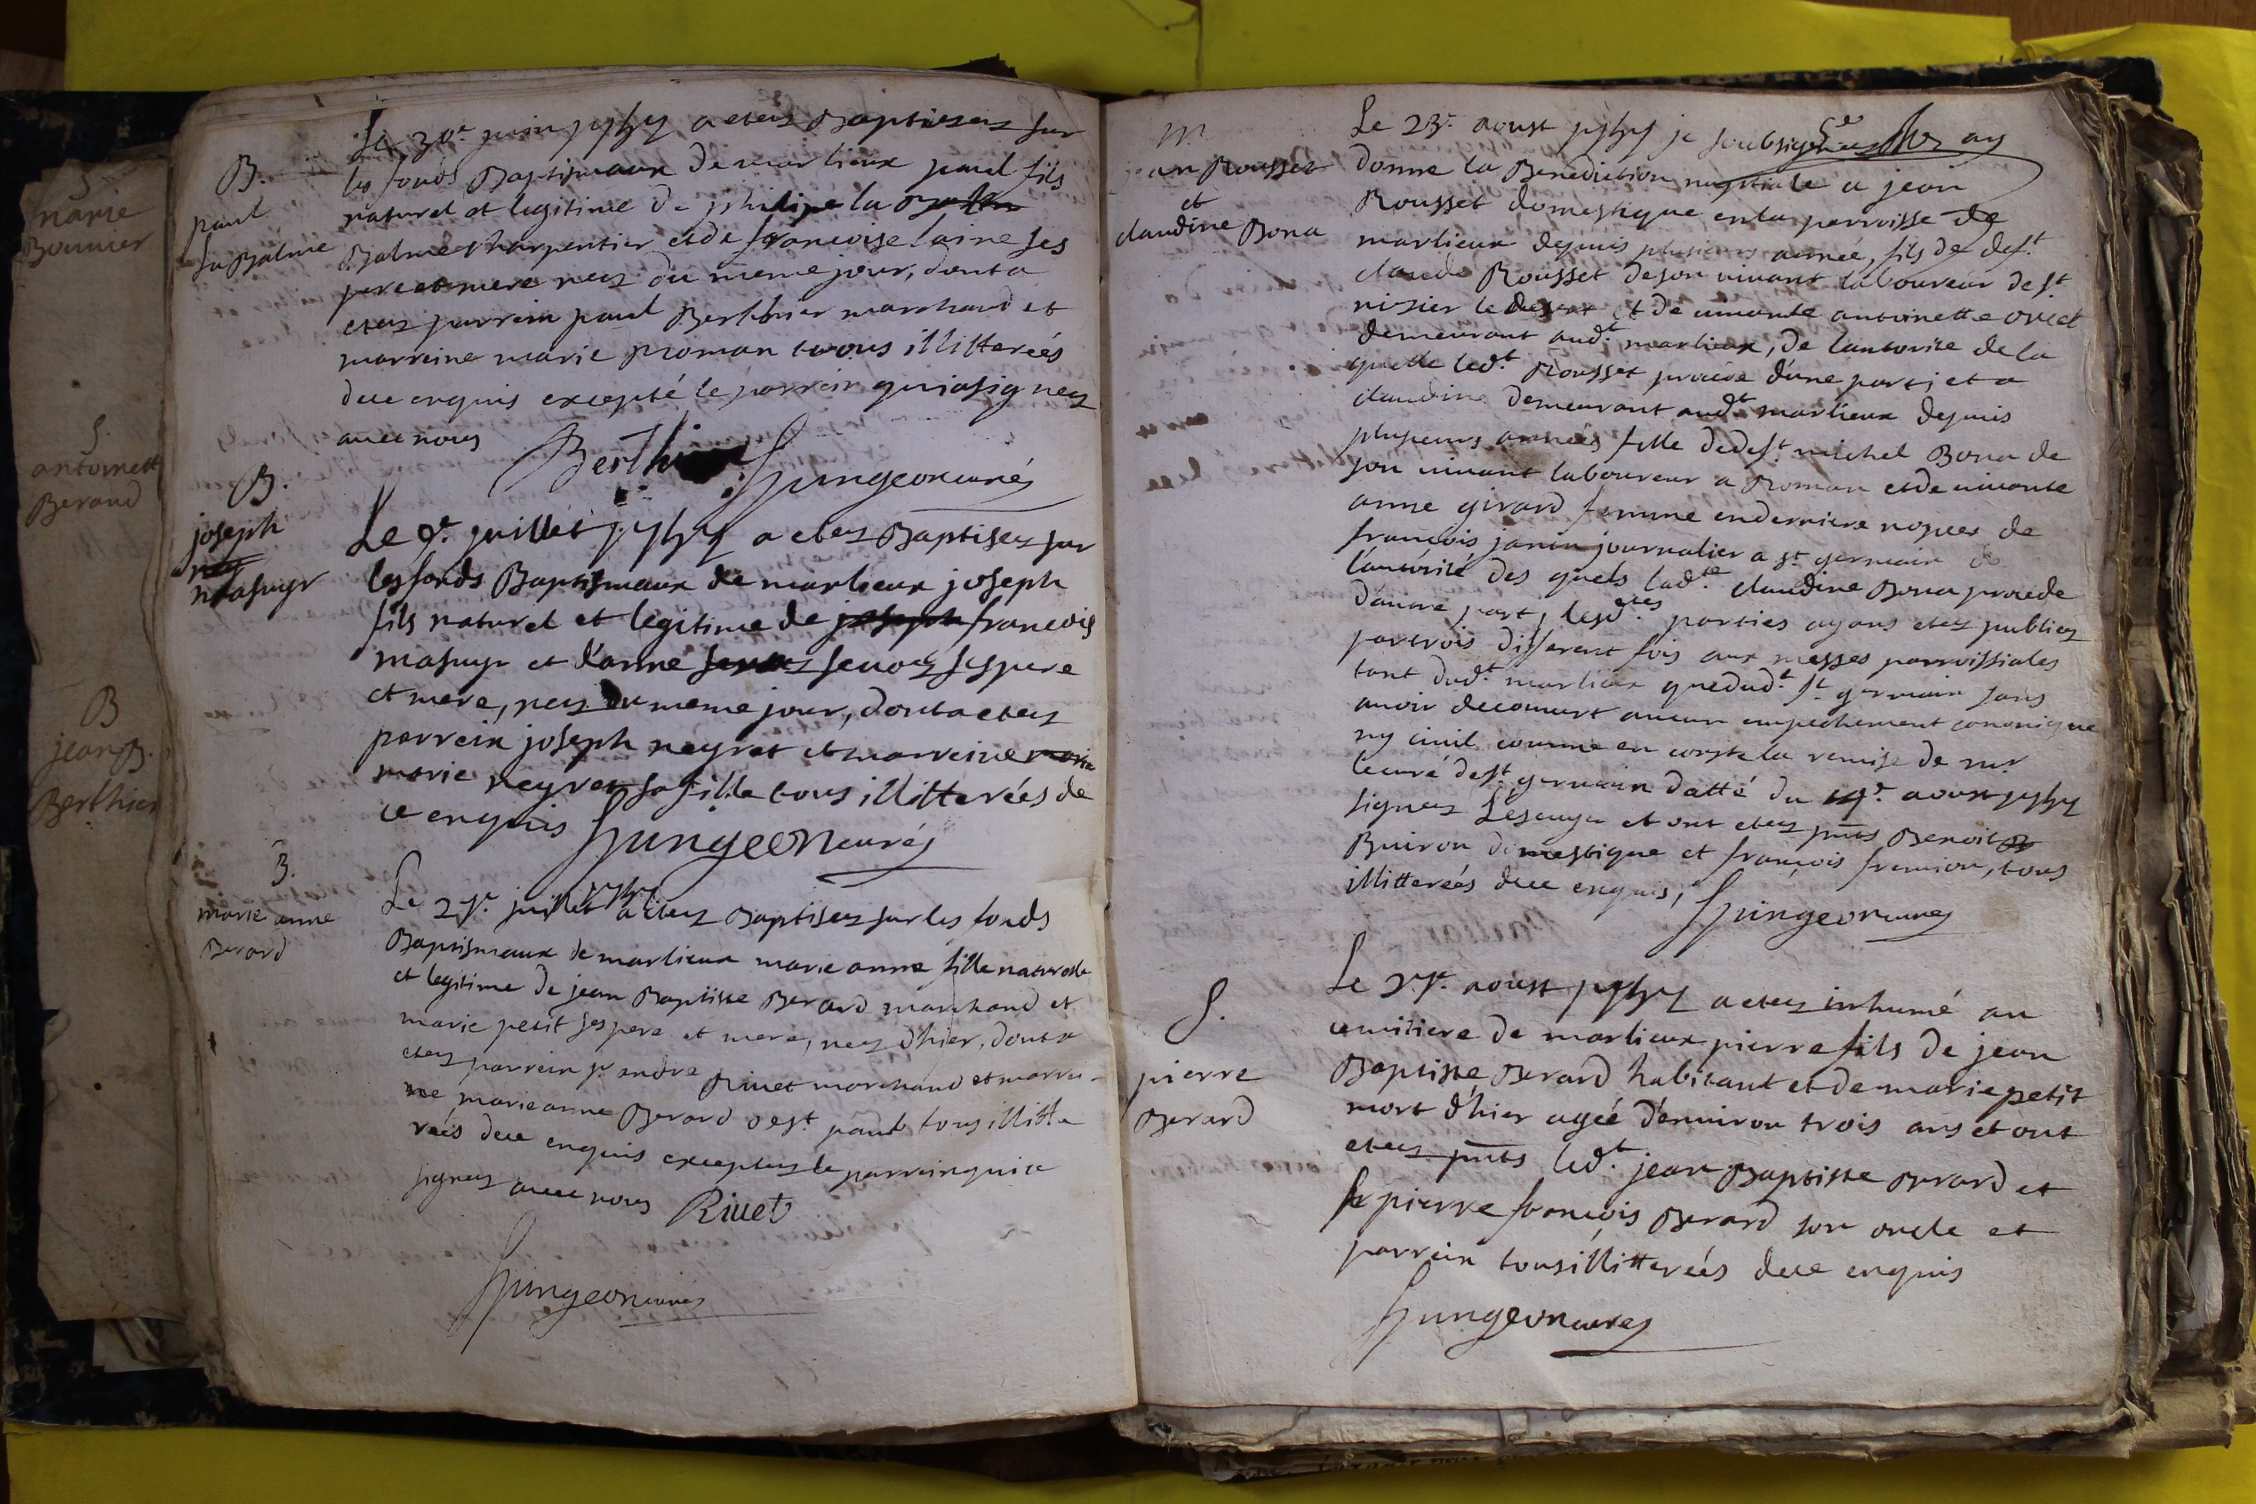 marie
Bounier
S.
antoinett
Berard
B
jean B.
Berthier
B.
paul
la Balme
Le 30e juin a etez Baptisez sur
les fonds Baptismaux de marlieux paul fils
naturel et legitime de philipe la
Balme charpentier et de francoise laine ses
pere et mere nez du meme jour, dont a
etez parrein paul Berthier marchand et
marreine marie proman touus illitterées
dece enquis excepté le parrein qui a signez
auec nous Berthier Spingeon curé
B.
joseph
masuyr
Le 9e juillet a etez Baptisez sur
les fonds Baptismaux de marlieux joseph
fils naturel et legitime de joseph francois
masuyr et d'anne seuoz ses pere
et mere, nez du meme jour, dont a etez
parrein joseph neyret et marreine marie
marie neyret sa fille tous illitterées de
ce enquis Spingeon curé
B.
marie anne
Berard
Le juillet a etez Baptisez sur les fonds
Baptismaux de marlieux marie anne fille naturelle
et legitime de jean Baptiste Berard marchand et
marie petit ses pere et mere, nez d'hier, dont a
etez parrein sr andre Riuet marchand et marrei-
ne marie anne Berard tous illitte
reés dece enquis exceptez le parrein qui a
signez auec nous Riuet
Spingeon curé
M.
jean Rousset
et
claudine Bona
Le 23e aoust je soubsigné ay
donne la Benediction nuptiale a jean
Rousset domestique en la parroisse de
marlieux depuis plusieurs année, fils de deft
claude Rousset de son uiuant laboureur de st
nizier le desert et de uiuante antoinette
demeurant audt marlieux, de lautorité de la
quelle ledt Rousset procede d'une part; et a
claudine demeurant audt marlieux depuis
plusieurs années fille de deft michel Bona de
son uiuant laboureur a Roman et de uiuante
anne girard femme en derniere nopces de
francois janin journalier a st germain de
l'autorité des quels ladte claudine Bona procede
d'autre part, lesdtes parties ayans etez publiez
par trois differents fois aux messes parroissiales
tant dudt marlieux que dudt st germain sans
auoir decouuert aucun empechement canonique
ny ciuil comme en conste la remise de mr
le curé de st germain datté du 19e aoust
signez et ont etez pnts Benoit
Buiron domestique et francois fremion, tous
illitterées dece enquis, Spingeon curé
S.
pierre
Berard
Le aoust a etez inhumé au
cemitiere de marlieux pierre fils de jean
Baptiste Berard habitant et de marie petit
mort d'hier ageé d'enuiron trois ans et ont
etez pnts ledt jean Baptiste Berard et
pierre francois Berard son oncle et
parrein tous illitterées dece enquis
Spingeon curé